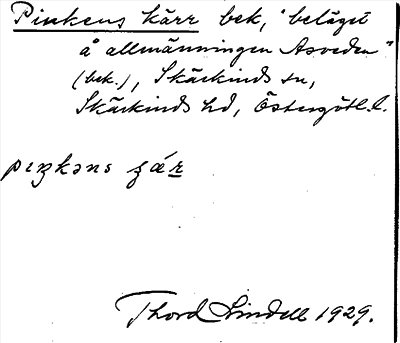 Pinkens kärr bek, "beläget
å allmänningen Asveden"
(bek.), Skärkinds sn,
Skärkinds hd, Östergötl. l.
pıŋkəns ɕár
Thord Lindell 1929.